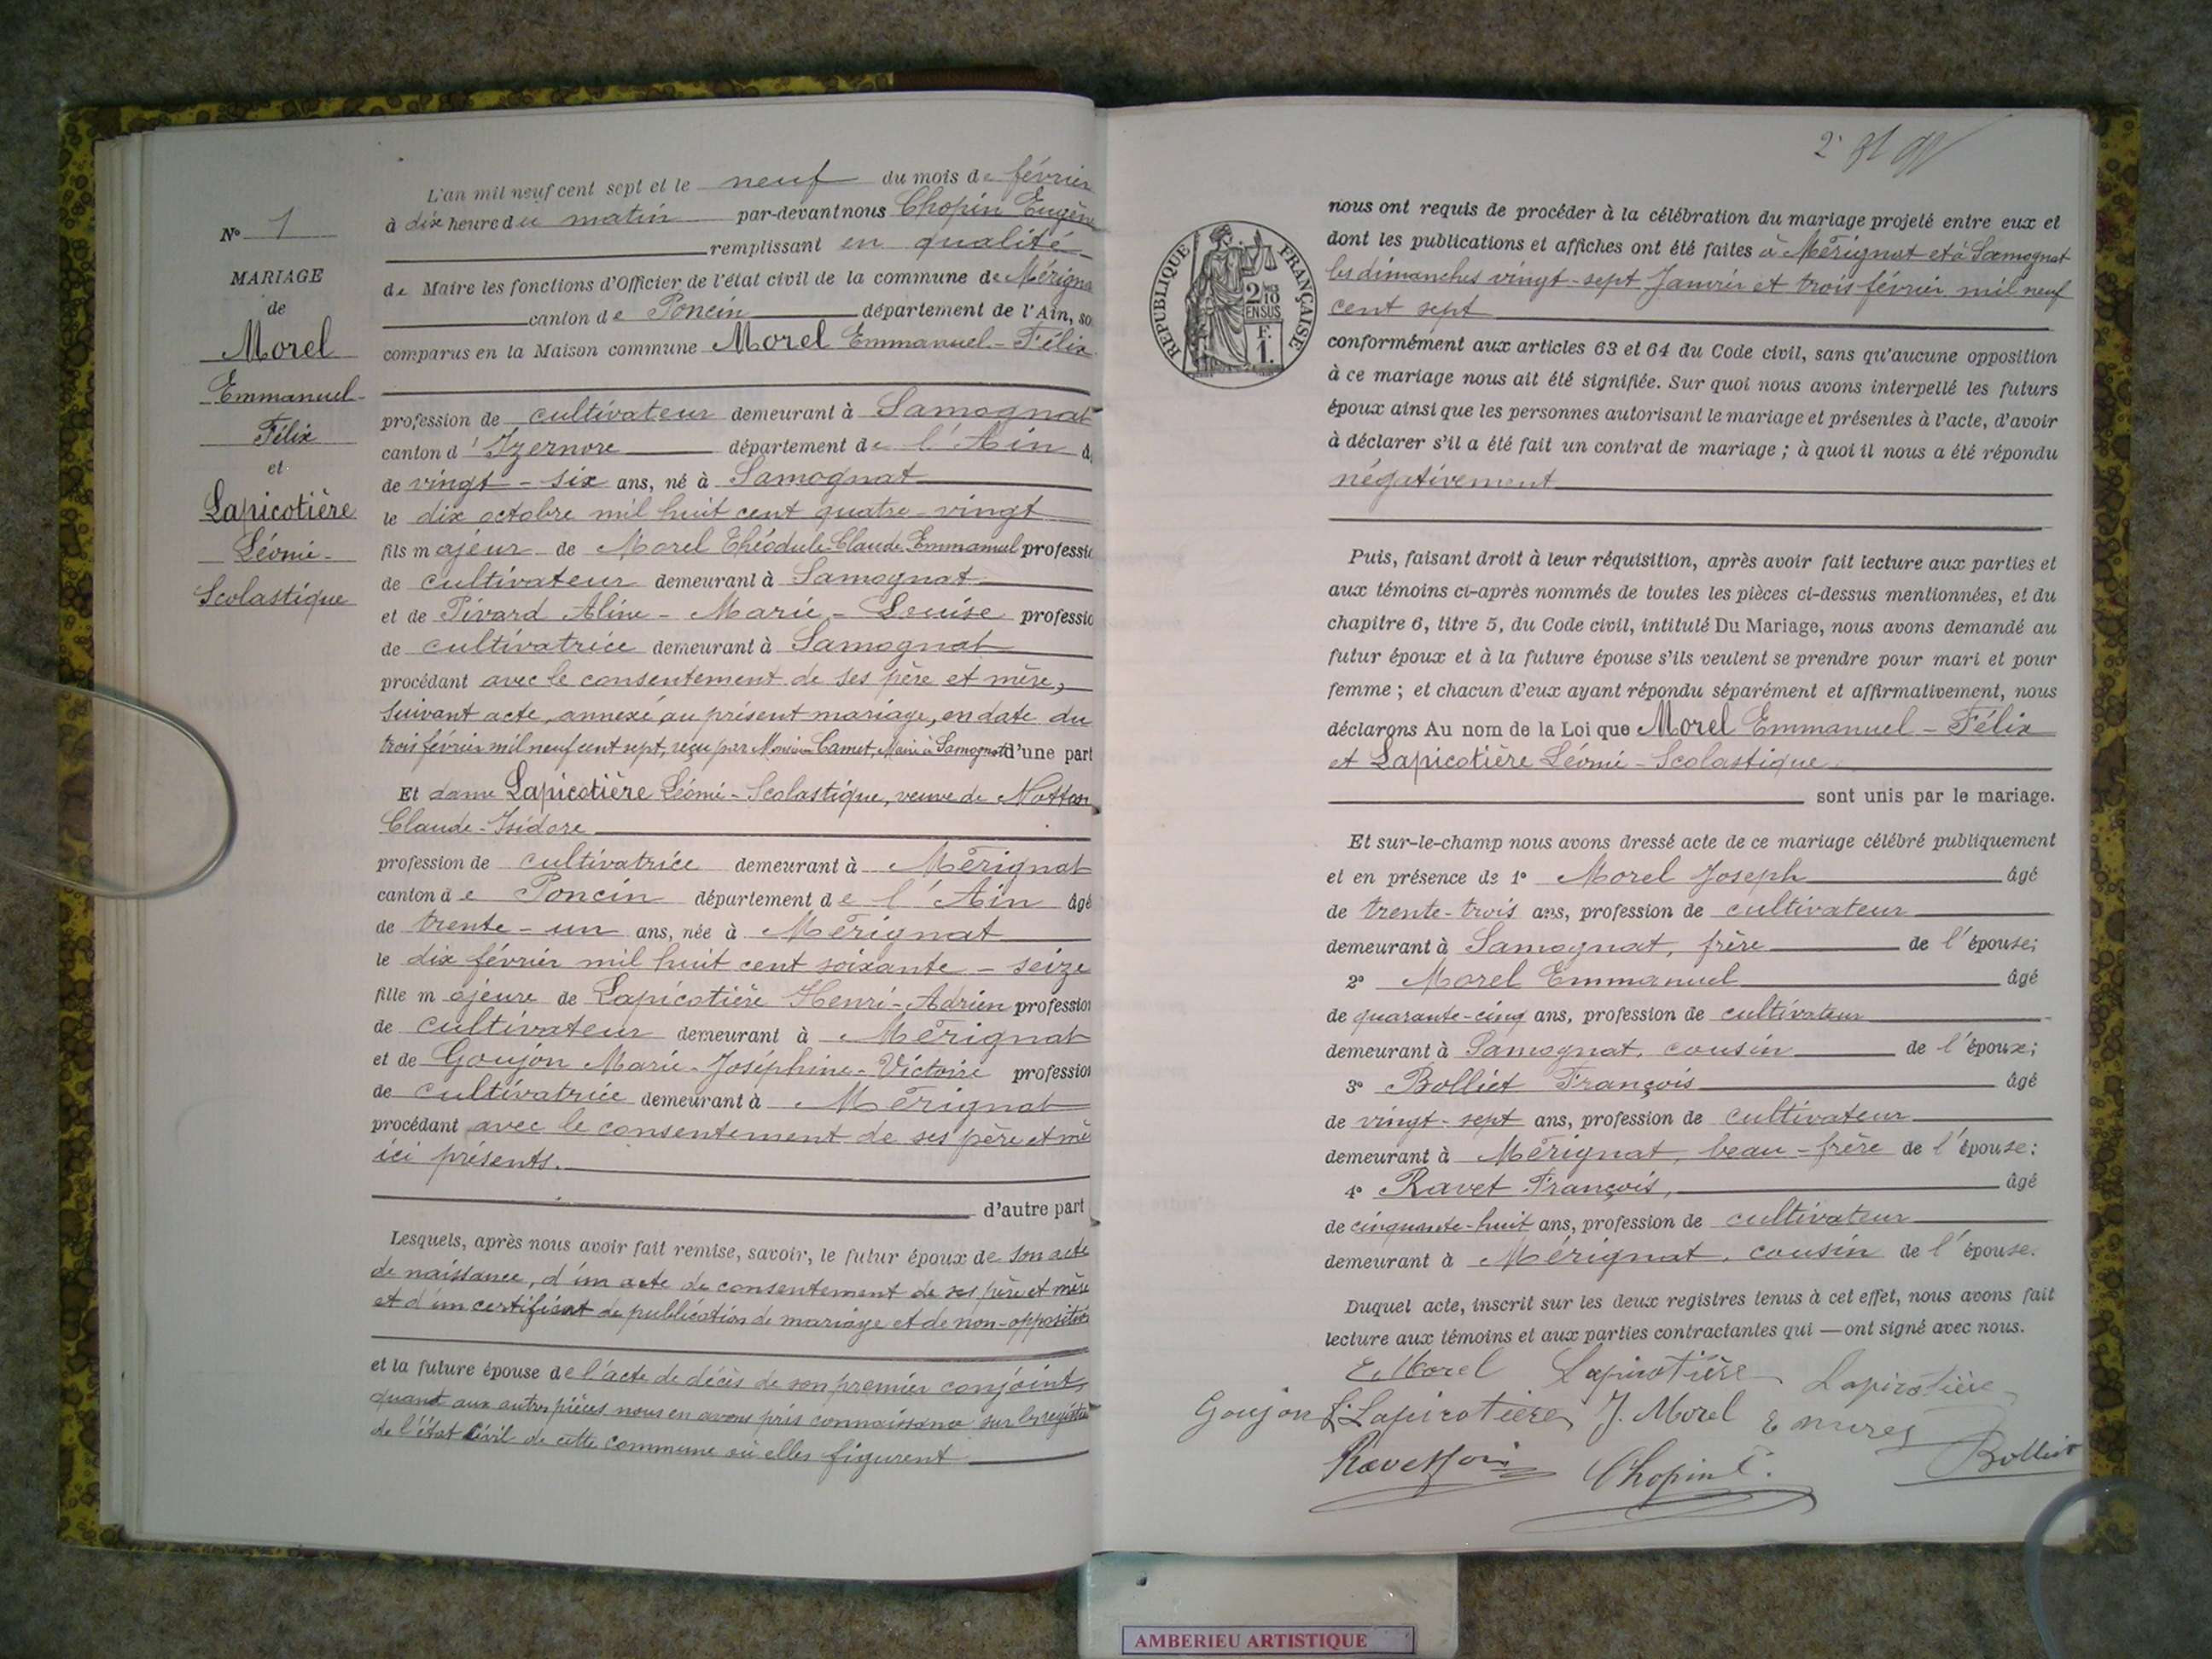 N° 1
MARIAGE
de
Morel
Emmanuel-
Félix
et
Lapicotière
Léonie-
Scolastique
L'an mil neuf cent sept et le neuf du mois de février
à dix heure du matin par-devant nous Chopin Eugène
remplissant en qualité
de Maire les fonctions d'Officier de l'état civil de la commune de Mérigna
canton de Poncin département de l'Ain, so
comparus en la Maison commune Morel Emmanuel-Félix
profession de cultivateur demeurant à Samognat
canton d'Izernore département de l'Ain â
de vingt-six ans, né à Samognat
le dix octobre mil huit cent quatre-vingt
fils majeur de Morel Théodule-Claude-Emmanuel professio
de cultivateur demeurant à Samognat
et de Pivard Aline-Marie-Louise professio
de cultivatrice demeurant à Samognat
procédant avec le consentement de ses père et mère,
suivant acte, annexé au présent mariage, en date du
trois février mil neuf cent sept, reçu par Monsieur Camet, Maire à Samognat d'une part
Et dame Lapicotière Léonie-Scolastique, veuve de Notton
Claude-Isidore
profession de cultivatrice demeurant à Mérignat
canton de Poncin département de l'Ain âgé
de trente-un ans, née à Mérignat
le dix février mil huit cent soixante-seize
fille majeure de Lapicotière Henri-Adrien profession
de cultivateur demeurant à Mérignat
et de Goujon Marie-Joséphine-Victoire profession
de cultivatrice demeurant à Mérignat
procédant avec le consentement de ses père et mè
ici présents.
d'autre part
Lesquels, après nous avoir fait remise, savoir, le futur époux de son acte
de naissance, d'un acte de consentement de ses père et mère
et d'un certificat de publication de mariage et de non-opposition
et la future épouse de l'acte de décès de son premier conjoint,
quant aux autres pièces nous en avons pris connaissance sur les registres
de l'état civil de cette commune où elles figurent
RÉPUBLIQUE FRANÇAISE
2 10MES
EN SUS
F.
1.
nous ont requis de procéder à la célébration du mariage projeté entre eux et
dont les publications et affiches ont été faites à Mérignat et à Samognat
les dimanches vingt-sept Janvier et trois février mil neuf
cent sept
conformément aux articles 63 et 64 du Code civil, sans qu'aucune opposition
à ce mariage nous ait été signifiée. Sur quoi nous avons interpellé les futurs
époux ainsi que les personnes autorisant le mariage et présentes à l'acte, d'avoir
à déclarer s'il a été fait un contrat de mariage ; à quoi il nous a été répondu
négativement
Puis, faisant droit à leur réquisition, après avoir fait lecture aux parties et
aux témoins ci-après nommés de toutes les pièces ci-dessus mentionnées, et du
chapitre 6, titre 5, du Code civil, intitulé Du Mariage, nous avons demandé au
futur époux et à la future épouse s'ils veulent se prendre pour mari et pour
femme ; et chacun d'eux ayant répondu séparément et affirmativement, nous
déclarons Au nom de la Loi que Morel Emmanuel-Félix
et Lapicotière Léonie-Scolastique
sont unis par le mariage.
Et sur-le-champ nous avons dressé acte de ce mariage célébré publiquement
et en présence de 1° Morel Joseph âgé
de trente-trois ans, profession de cultivateur
demeurant à Samognat, frère de l'épouse;
2° Morel Emmanuel âgé
de quarante-cinq ans, profession de cultivateur
demeurant à Samognat, cousin de l'époux;
3° Bolliet François âgé
de vingt-sept ans, profession de cultivateur
demeurant à Mérignat, beau-frère de l'épouse:
4° Ravet François, âgé
de cinquante-huit ans, profession de cultivateur
demeurant à Mérignat, cousin de l'épouse.
Duquel acte, inscrit sur les deux registres tenus à cet effet, nous avons fait
lecture aux témoins et aux parties contractantes qui — ont signé avec nous.
E. Morel Lapicotière Lapicotière
Goujon f. Lapicotière J. Morel
Bolliet
Chopin E.
AMBERIEU ARTISTIQUE